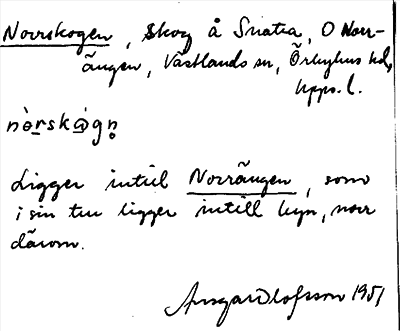 Norrskogen, Skog å Snatra, O Norr-
ängen, Västlands sn, Örbyhus hd,
Upps. l.
nòrskògn̥
Ligger intill Norrängen, som
i sin tur ligger intill byn, norr
därom.
Ansgar Olofsson 1951